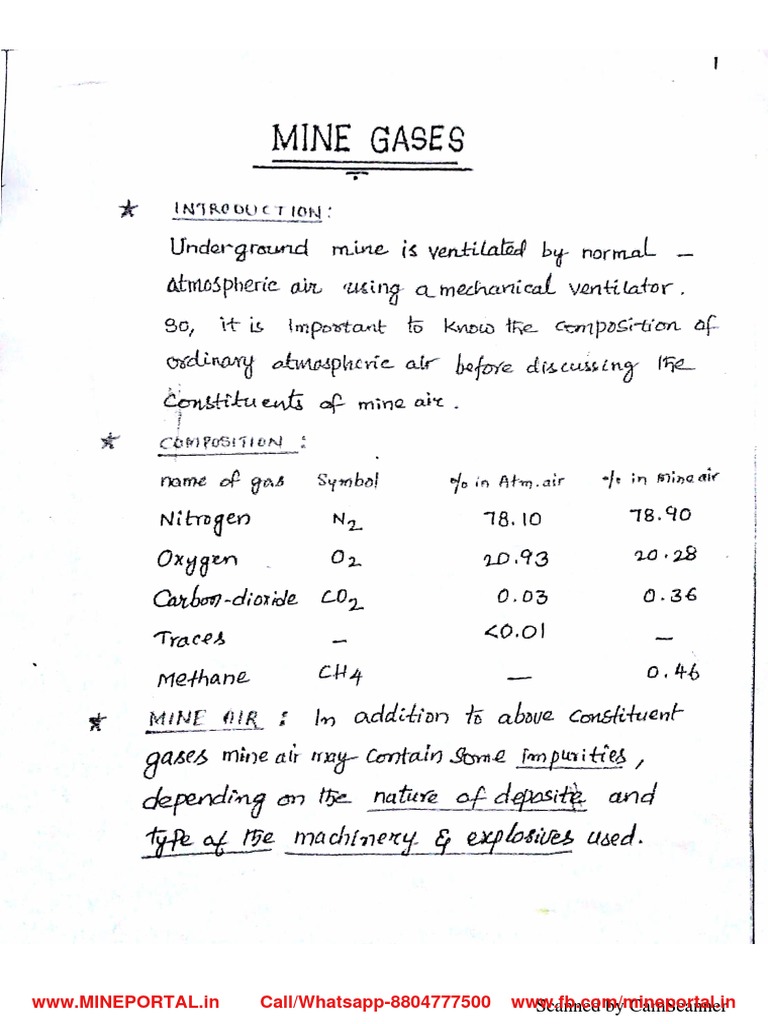 1
MINE GASES
★ INTRODUCTION:
Underground mine is ventilated by normal –
atmospheric air using a mechanical ventilator.
So, it is important to know the composition of
ordinary atmospheric air before discussing the
constituents of mine air.
★ COMPOSITION :
name of gas Symbol % in Atm. air % in Mine air
Nitrogen N2 78.10 78.90
Oxygen O2 20.93 20.28
Carbon-dioxide CO2 0.03 0.36
Traces – <0.01 –
Methane CH4 – 0.46
★ MINE AIR : In addition to above constituent
gases mine air may contain some impurities,
depending on the nature of deposite and
type of the machinery & explosives used.
www.MINEPORTAL.in Call/Whatsapp-8804777500 www.fb.com/mineportal.in
Scanned by CamScanner